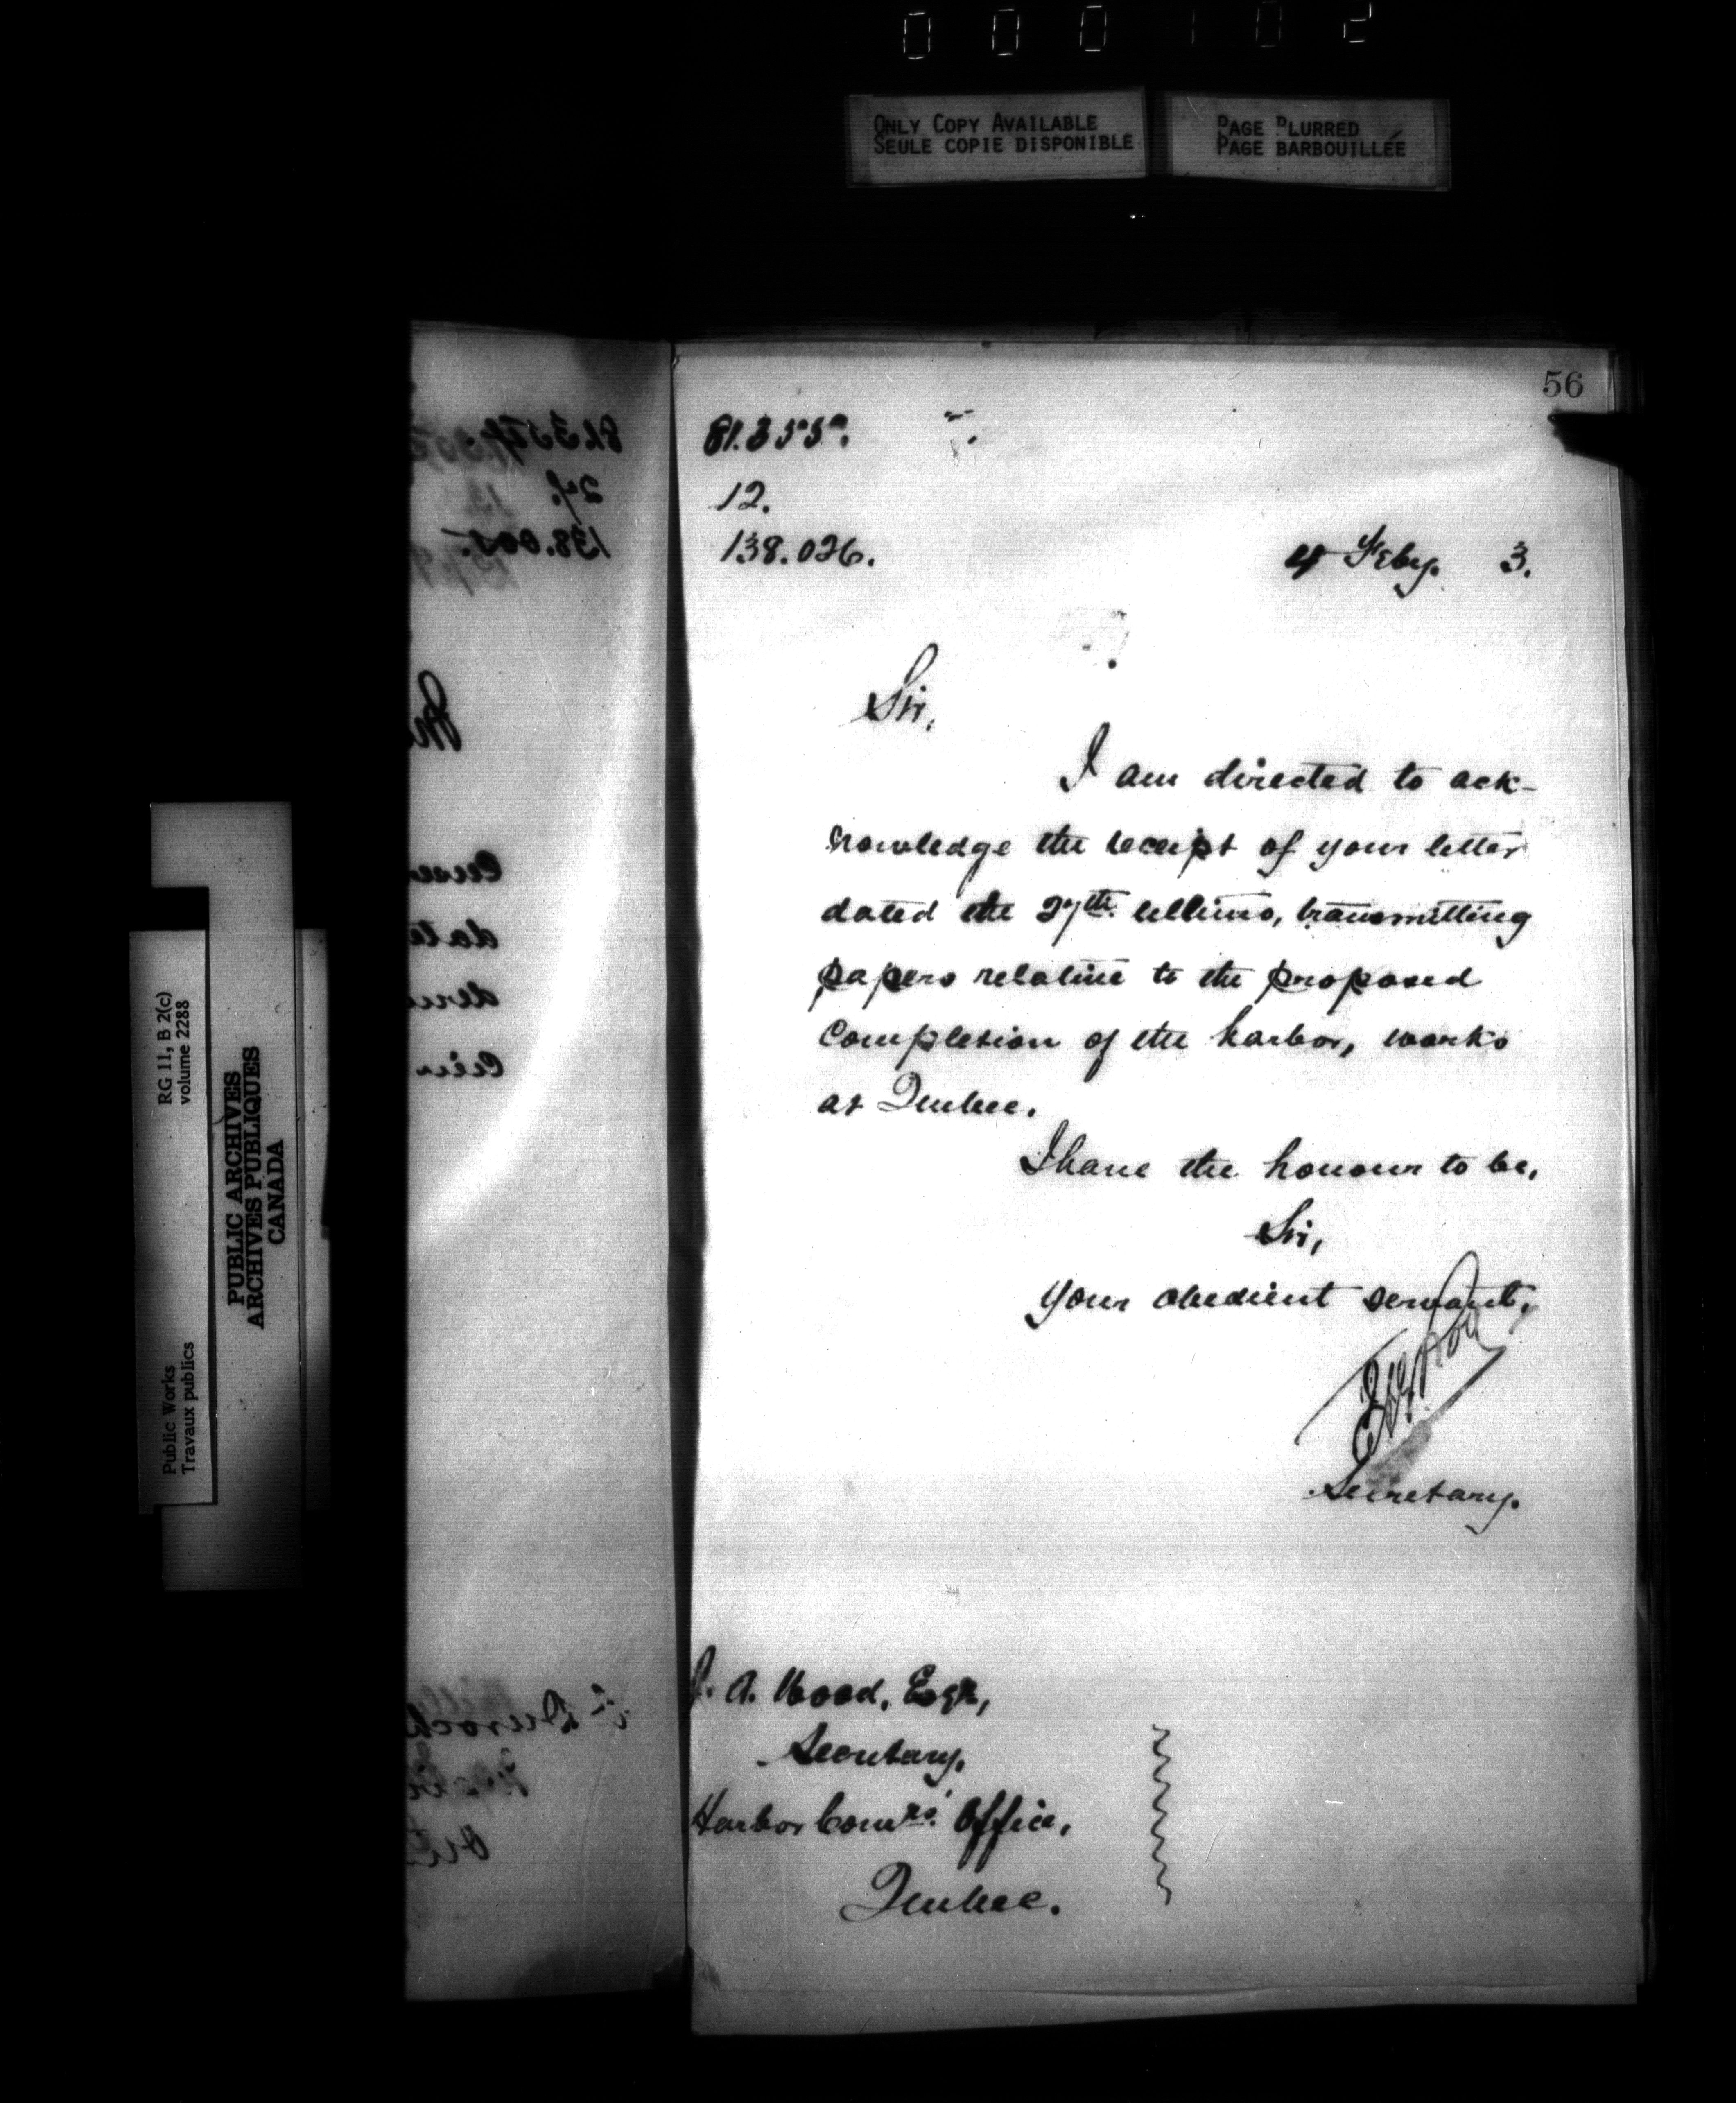 000102
ONLY COPY AVAILABLE
SEULE COPIE DISPONIBLE
PAGE BLURRED
PAGE BARBOUILLÉE
RG 11, B 2(c)
volume 2288
Public Works
Travaux publics
PUBLIC ARCHIVES
ARCHIVES PUBLIQUES
CANADA
56
81.355.
12.
138.026.
4 Feby. 3.
Sir,
I am directed to ack-
nowledge the receipt of your letter
dated the 27th. ultimo, transmitting
papers relative to the proposed
completion of the harbor, works
at Quebec.
I have the honour to be,
Sir,
Your obedient servant,
Secretary.
J. A. Wood, Esqr,
Secretary,
Harbor Comrs' Office,
Quebec.